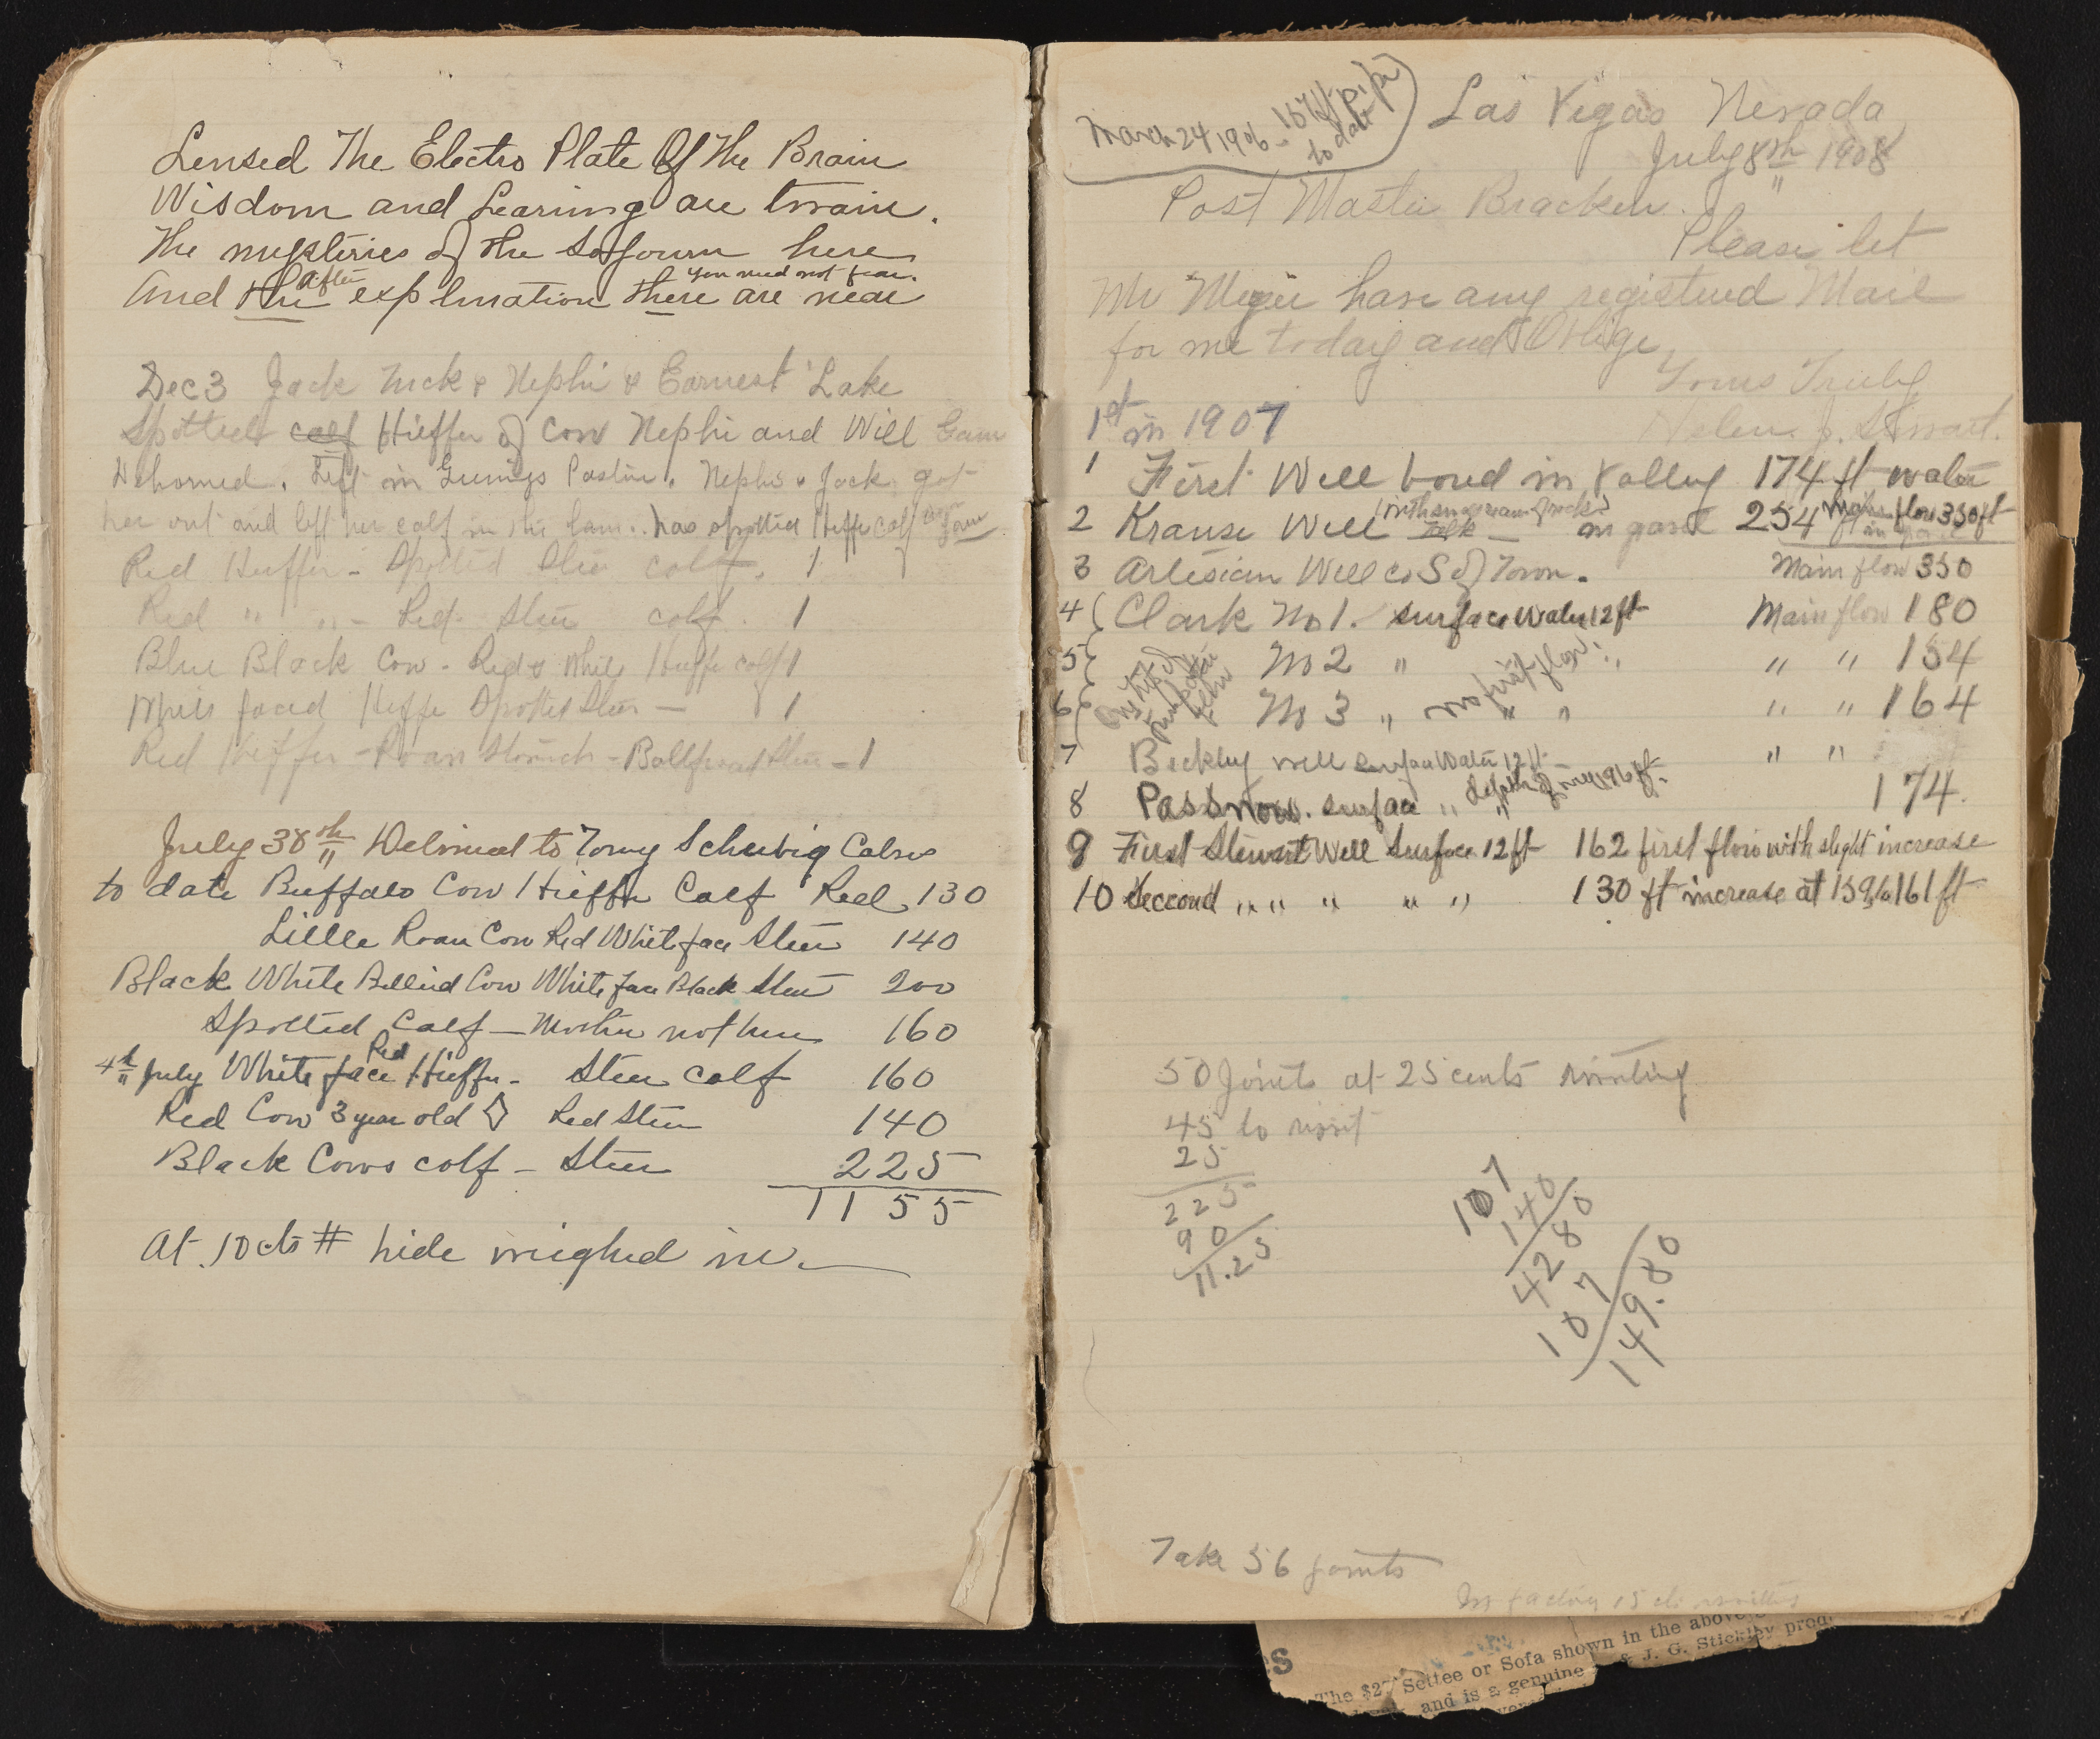 Lensed The Electro Plate Of The Brain
Wisdom and Learning are twain.
The mysteries of the Sojourn here
you need not fear.
And the after explination there are near
Dec 3 Jack Nick & Nephi & Earnest Lake
Spotted calf Hieffer of Cow Nephi and Will
Dehorned. Left in Pasture. Nephi & Jack got
her out and left her calf in the barn.. has spotted Heffe calf
Red Heiffer - Spotted Steer calf. 1
Red " " - Red Steer calf. 1
Blue Black Cow - Red & White Heiffe calf 1
White faced Heffe Spotted Steer - 1
Red Hieffer - Roan Stomach - Ballfaced Steer - 1
July 30th Delivered to Tony Schubig Calves
to date Buffalo Cow Hieffer Calf Red 130
Little Roan Cow Red White face Steer 140
Black White Bellied Cow White face Black Steer 200
Spotted Calf - Mother not here 160
4th July White face Red Hieffer - Steer calf 160
Red Cow 3 year old Red Steer 140
Black Cows calf - Steer 225
1155
At 10 cts # hide weighed in.
March 24 1906 - 157 ft pipe
to date
Las Vegas Nevada
July 8th 1908
Post Master Bracken.
Please let
Mr Megie have any registered Mail
for me today and Oblige
Yours Truly
Helen. J. Stewart.
1st in 1907
1 First Well bored in Valley 174 ft water
2 Krause Well on 254 ft Main flow 350 ft
3 Artesian Well co S of Town. Main flow 350
4 Clark No 1. surface Water 12 ft Main flow 180
5 No 2 " no first flow " " 154
6 No 3 " " " " " 164
7 Beckley well surface Water 12 ft " "
8 Passnow. surface " " depth of well 196 ft. 174.
9 First Stewart Well Surface 12 ft 162 first flow with slight increase
10 Seccond " " " " " 130 ft increase at 159 to 161 ft
50 Joints at 25 cents
45 to
25
225
90
11.25
107
140
4280
107
149.80
Take 56 joints
factory 15 cts
S
The $27 Settee or Sofa shown in the above
and is a genuine & J. G. Stickley prod